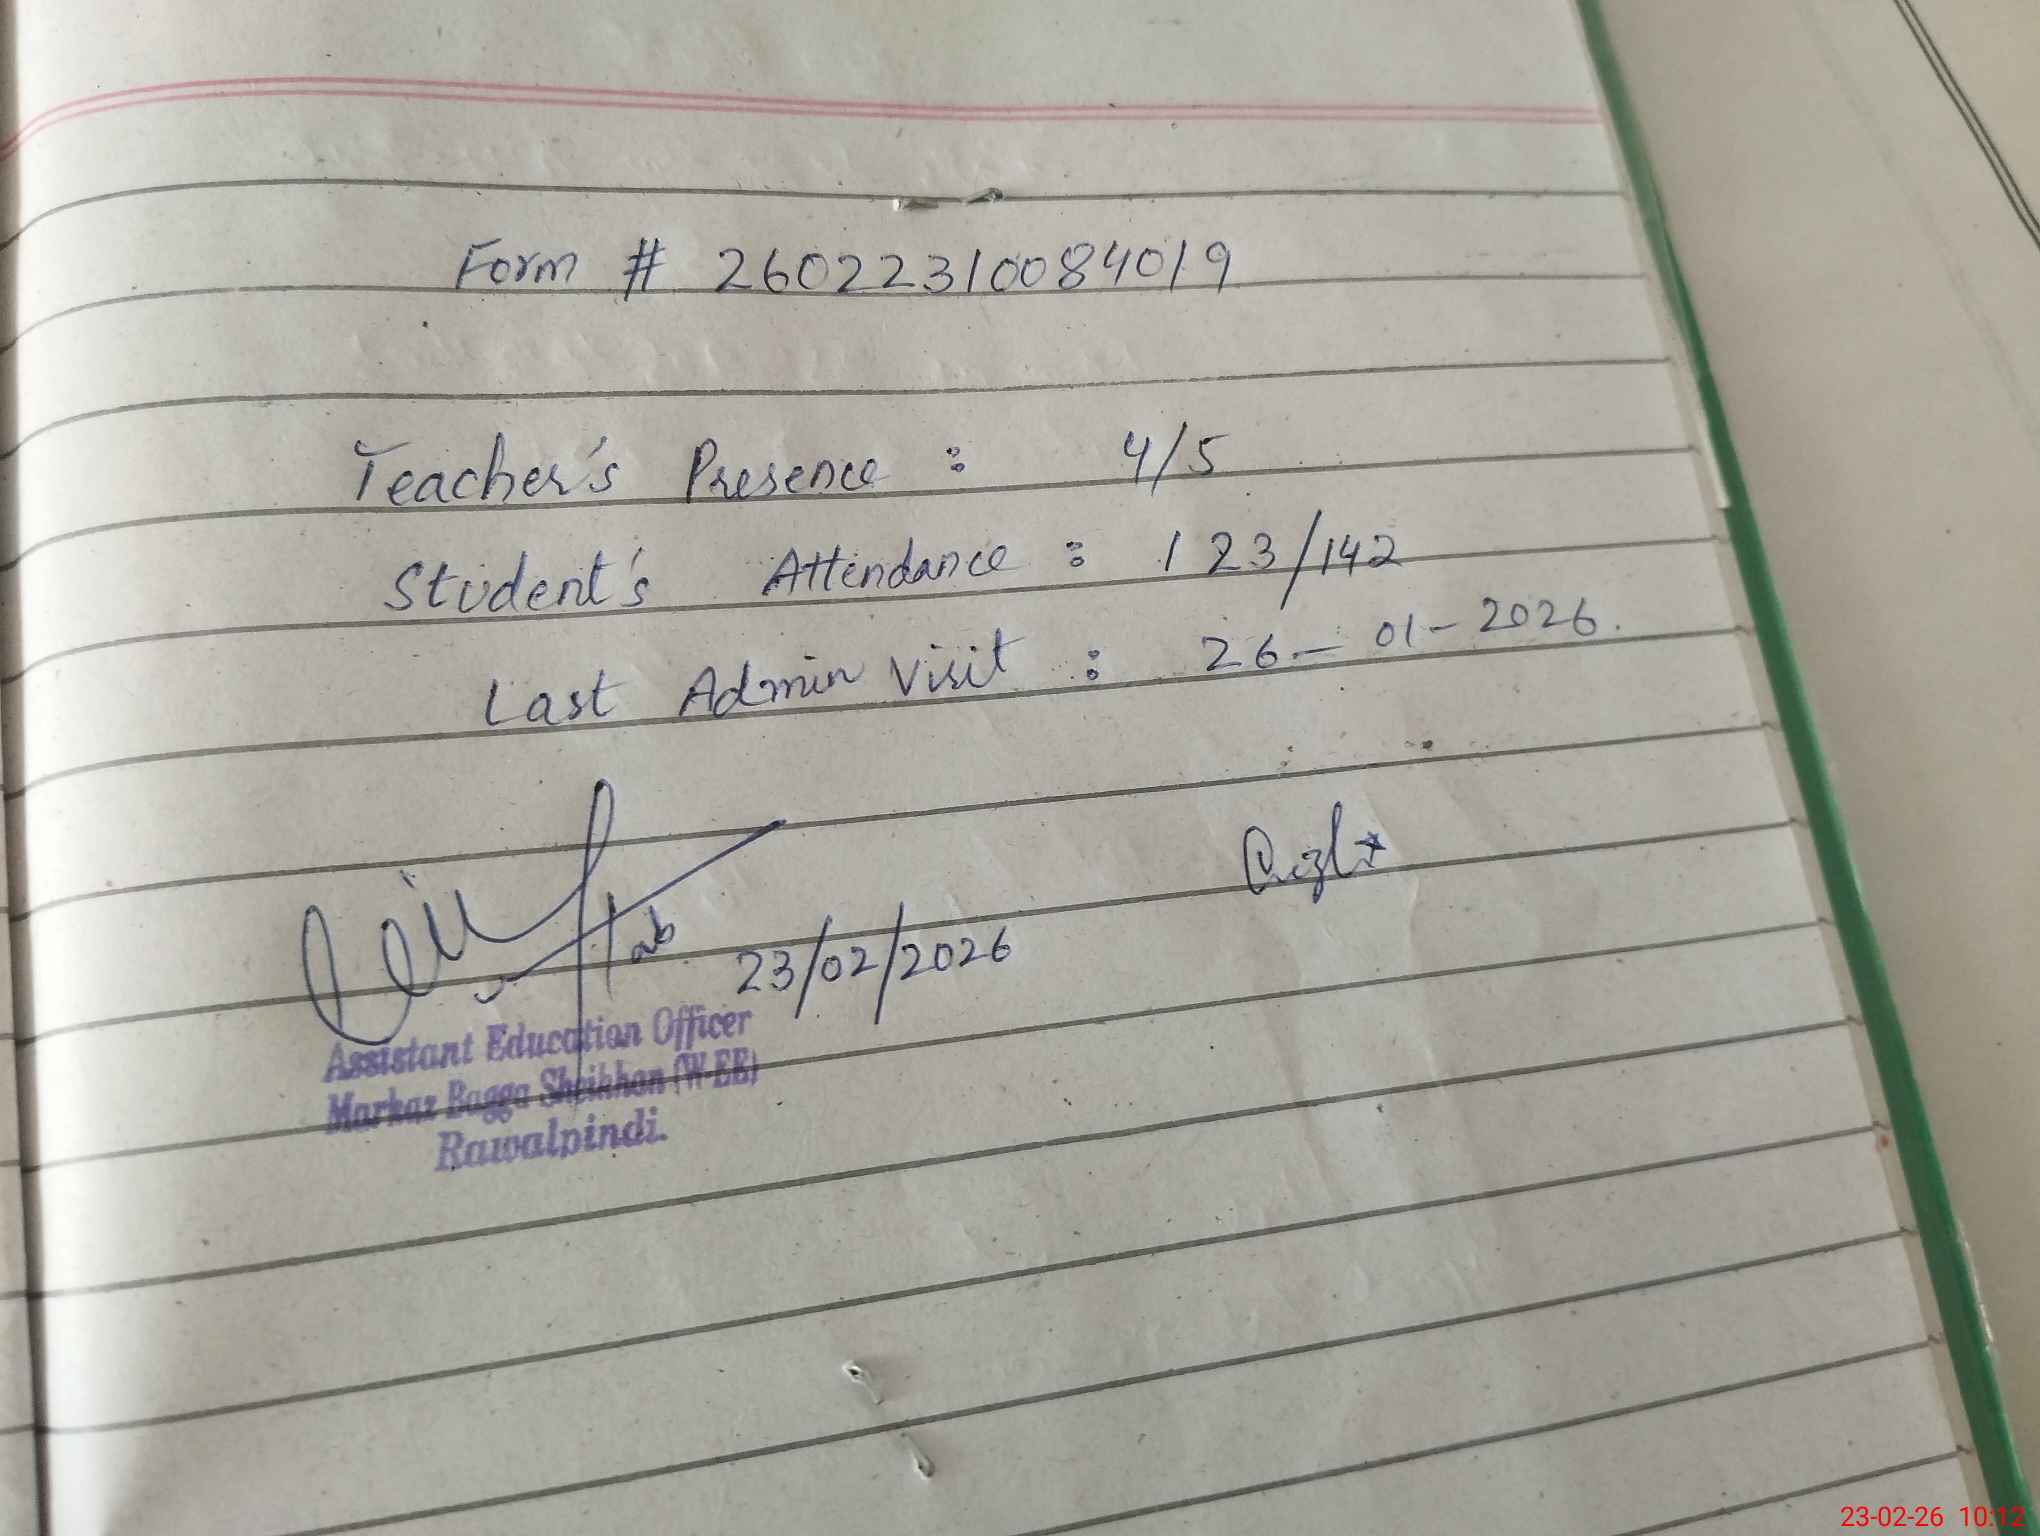 Form # 26022310084019
Teacher's Presence : 4/5
Student's Attendance : 123/142
Last Admin Visit : 26-01-2026.
23/02/2026
Assistant Education Officer
Markaz Bagga Sheikhan (W-EE)
Rawalpindi.
23-02-26 10:12